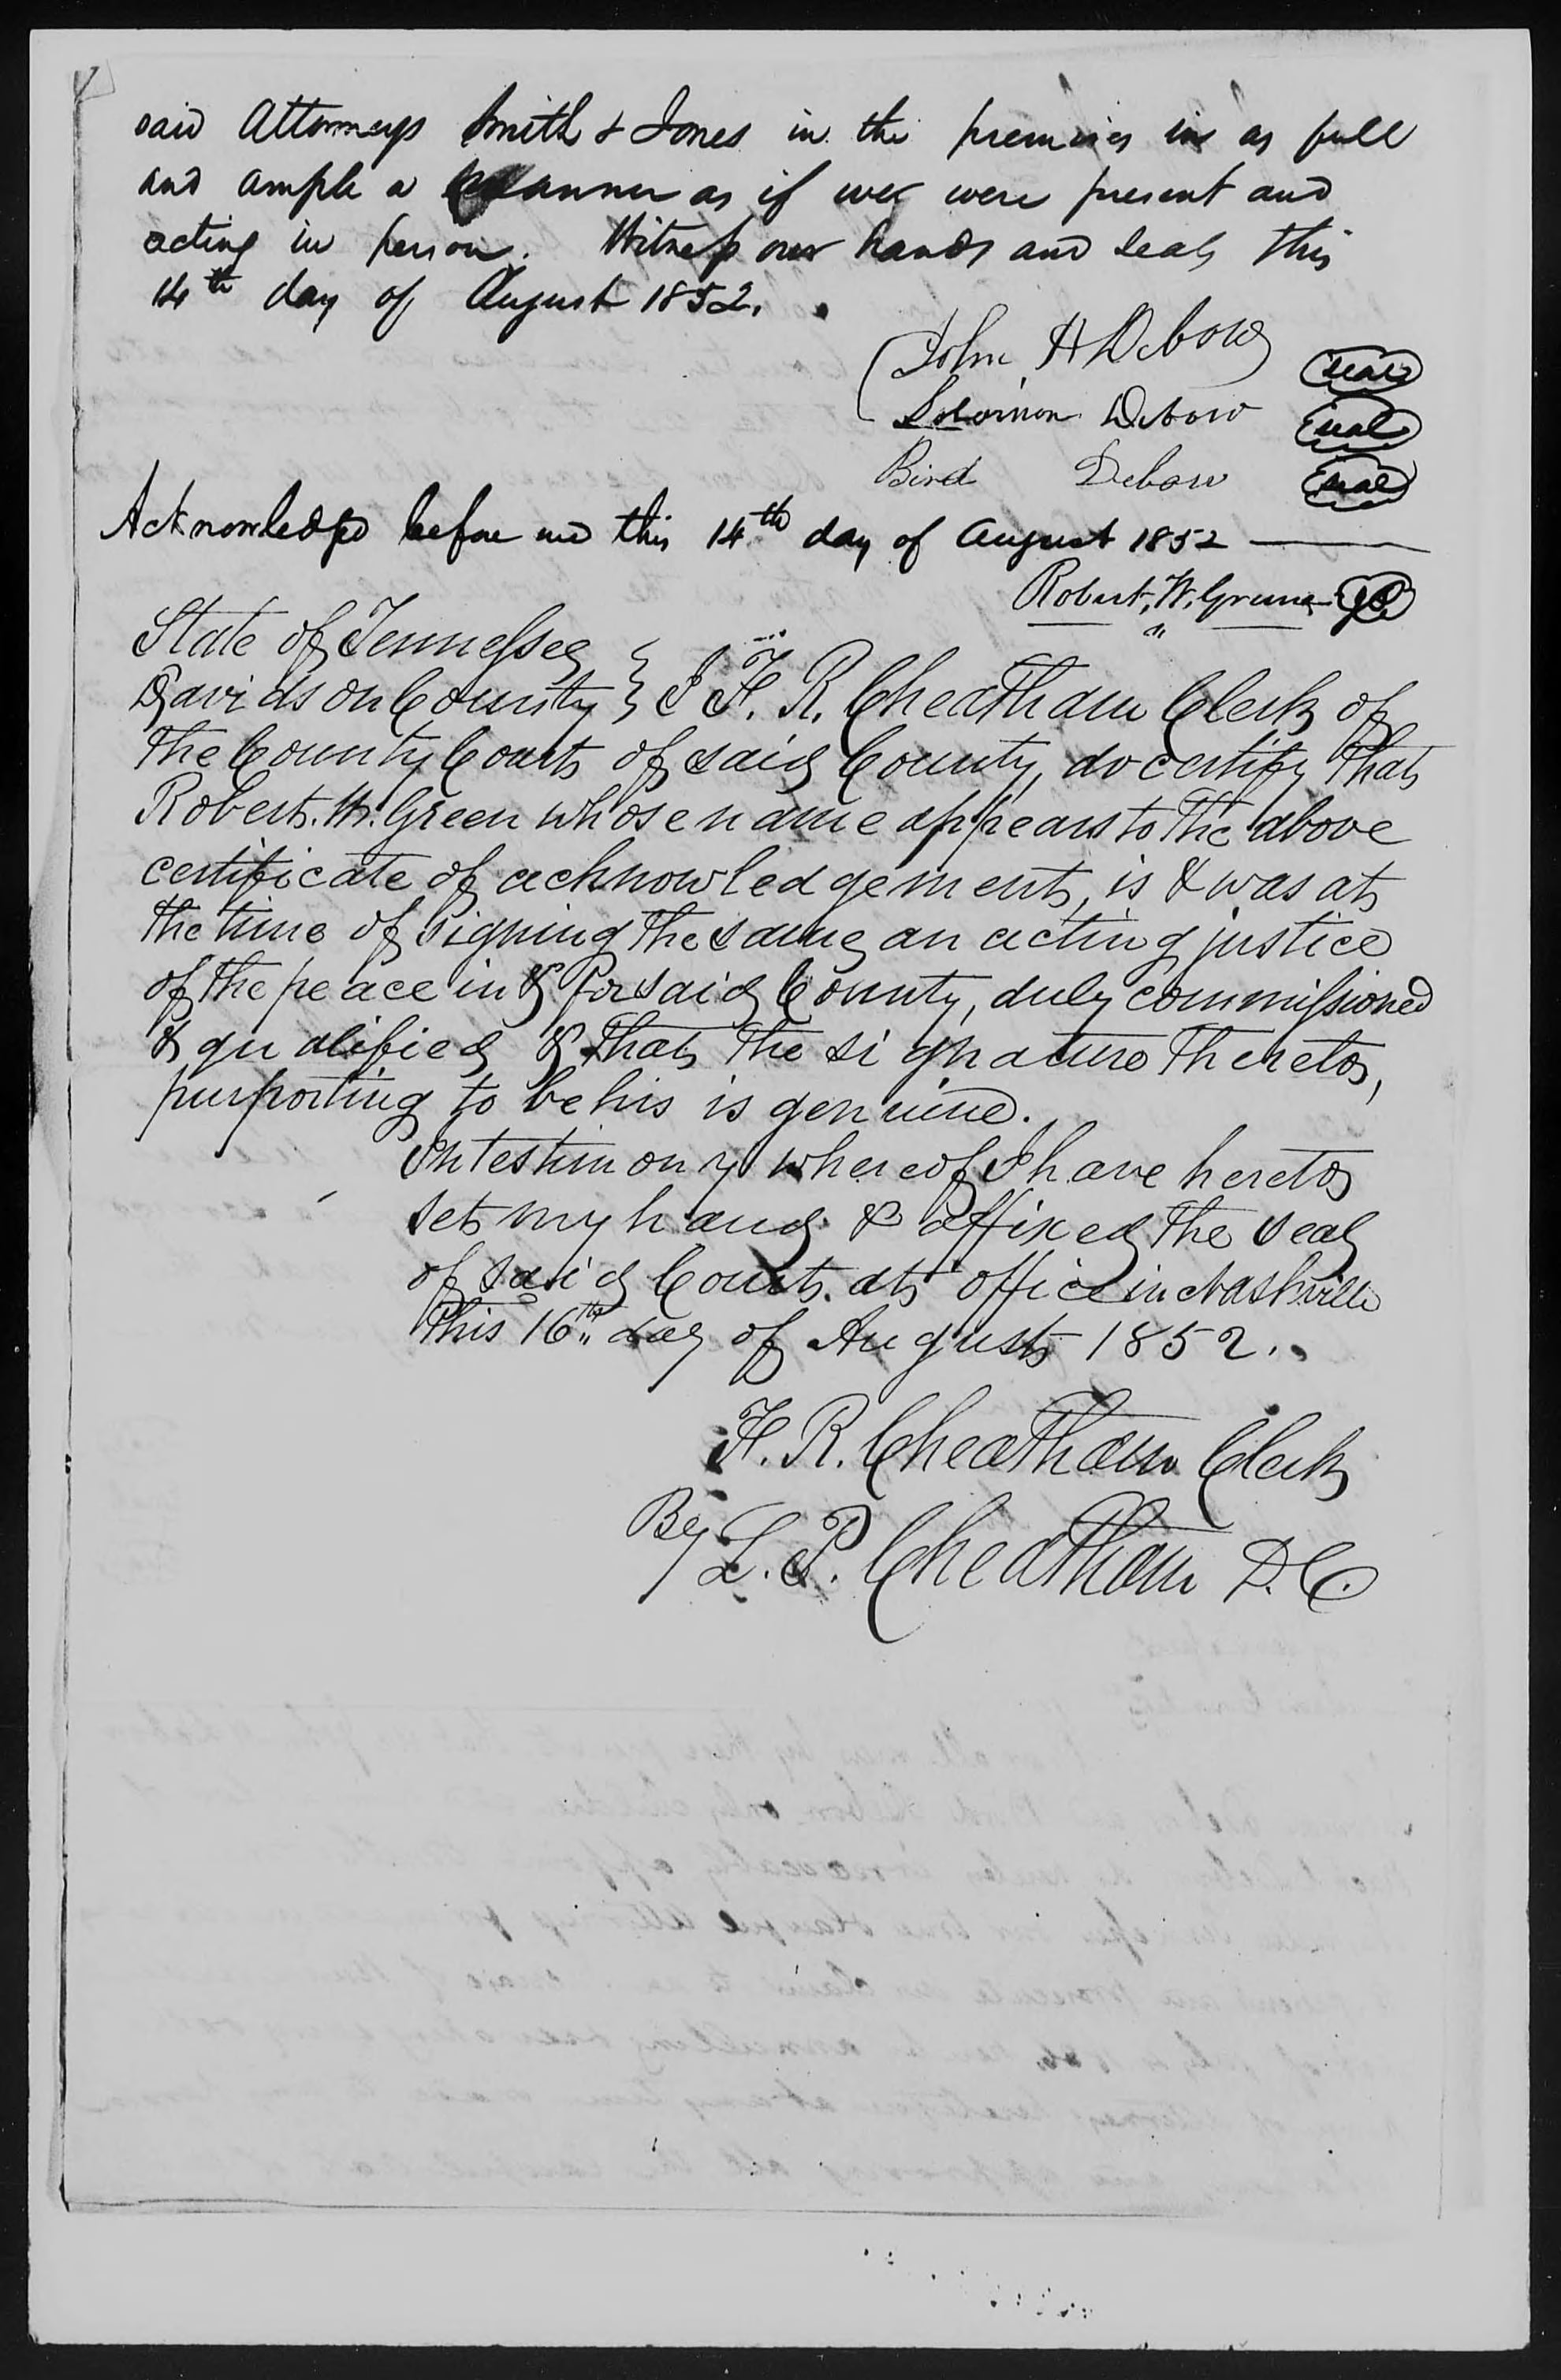 said Attorneys Smith & Jones in the premises in as full
and ample a manner as if we were present and
acting in person. Witness our hands and seals this
14th day of August 1852.
John H Debow seal
Solomon Debow seal
Bird Debow seal
Acknowledged before me this 14th day of August 1852
Robert, W, Green
State of Tennessee
Davidson County } I F. R. Cheatham Clerk of
the County Court of said County, do certify that
Robert. W. Green whose name appears to the above
certificate of acknowledgement, is & was at
the time of signing the same an acting justice
of the peace in & for said County, duly commissioned
& qualified & that the signature thereto,
purporting to be his is genuine.
In testimony whereof I have hereto
set my hand & affixed the seal
of said Court. at office in Nashville
this 16th day of August 1852.
F. R. Cheatham Clerk
By L. P. Cheatham D.C.